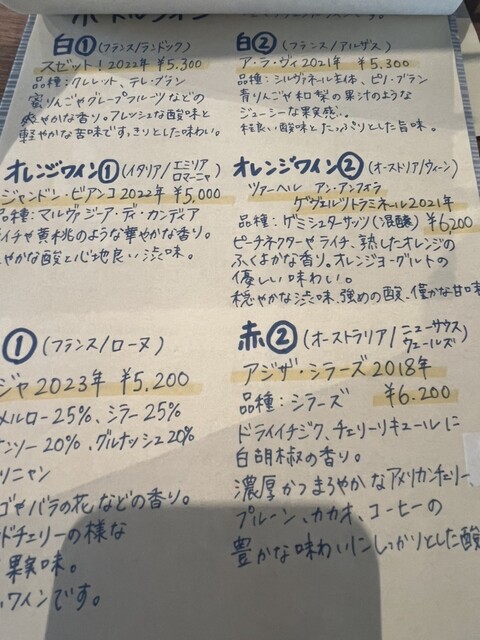 ボトルワイン
です。
白① (フランス/ラングドック)
スゼット！2022年 ¥5,300
品種：クレレット、テレ・ブラン
蜜りんごやグレープフルーツなどの
爽やかな香り。フレッシュな酸味と
軽やかな苦味ですっきりとした味わい。
白② (フランス/アルザス)
ア・ラ・ヴィ 2021年 ¥5,300
品種：シルヴァネール主体、ピノ・ブラン
青りんごや和梨の果汁のような
ジューシーな果実感。
程良い酸味とたっぷりとした旨味。
オレンジワイン① (イタリア/エミリア
ロマーニャ)
ジャンドン・ビアンコ 2022年 ¥5,000
品種：マルヴァジーア・ディ・カンディア
ライチや黄桃のような華やかな香り。
やかな酸と心地良い渋味。
オレンジワイン② (オーストリア/ウィーン)
ツァーヘル アン・アンフォラ
ゲヴュルツトラミネール 2021年
品種：ゲミシュターサッツ(混醸) ¥6200
ピーチネクターやライチ、熟したオレンジの
ふくよかな香り。オレンジヨーグルトの
優しい味わい。
穏やかな渋味、強めの酸、僅かな甘味
① (フランス/ローヌ)
ジャ 2023年 ¥5,200
メルロー25%、シラー25%
ンソー20%、グルナッシュ20%
リニャン
ゴやバラの花などの香り。
ドチェリーの様な
果実味。
いワインです。
赤② (オーストラリア/ニューサウス
ウェールズ)
アジザ・シラーズ 2018年
品種：シラーズ ¥6.200
ドライイチジク、チェリーリキュールに
白胡椒の香り。
濃厚かつまろやかなアメリカンチェリー、
プルーン、カカオ、コーヒーの
豊かな味わいにしっかりとした酸